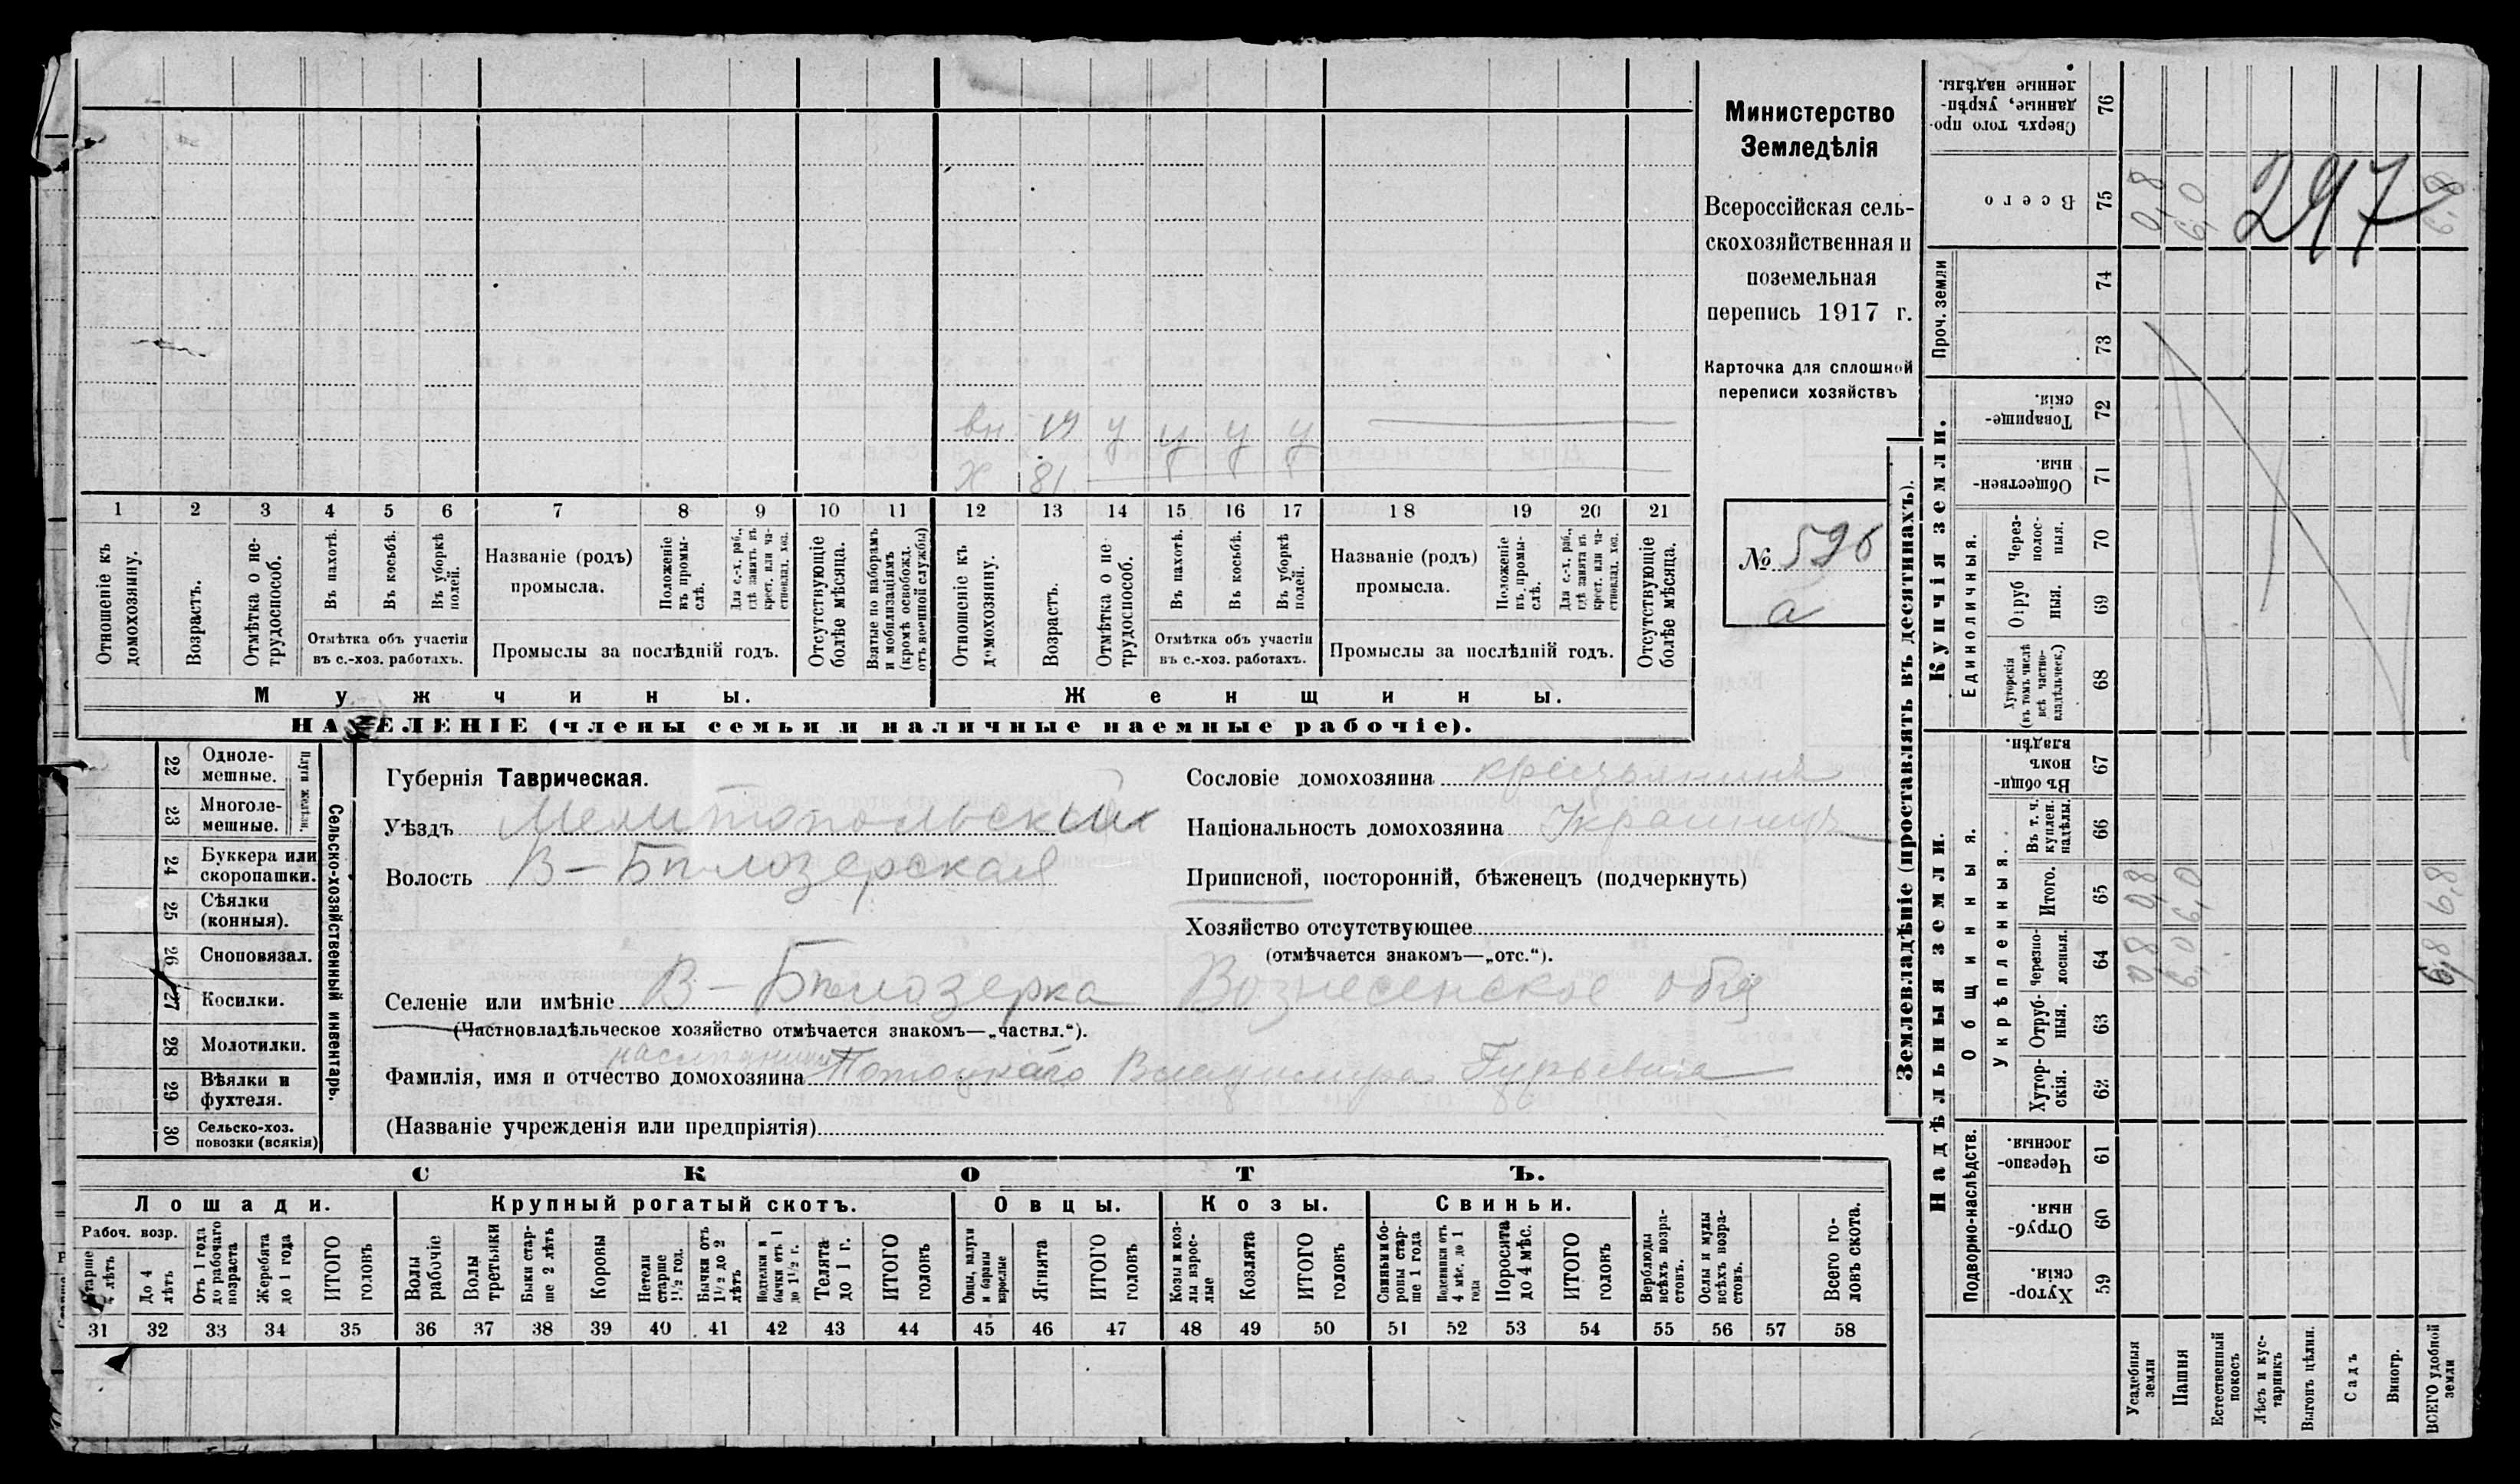 Министерство
Земледѣлія
Всероссійская сель-
скохозяйственная и
поземельная
перепись 1917 г.
Карточка для сплошной
переписи хозяйствъ
№ 596
а
297
вн 19 у у у у
Х 81
1 2 3 4 5 6 7 8 9 10 11 12 13 14 15 16 17 18 19 20 21
Отношеніе къ домохозяину.
Возрастъ.
Отмѣтка о не-трудоспособ.
Въ пахотѣ.
Въ косьбѣ.
Въ уборкѣ полей.
Отмѣтка объ участіи
въ с.-хоз. работахъ.
Названіе (родъ)
промысла.
Положеніе въ промы-слѣ.
Для с.-х. раб., гдѣ занятъ въ крест. или ча-стновлад. хоз.
Промыслы за послѣдній годъ.
Отсутствующіе болѣе мѣсяца.
Взятые по наборамъ и мобилизаціямъ (кромѣ освобожд. отъ военной службы)
Отношеніе къ домохозяину.
Возрастъ.
Отмѣтка о не-трудоспособ.
Въ пахотѣ.
Въ косьбѣ.
Въ уборкѣ полей.
Отмѣтка объ участіи
въ с.-хоз. работахъ.
Названіе (родъ)
промысла.
Положеніе въ промы-слѣ.
Для с.-х. раб., гдѣ занята въ крест. или ча-стновлад. хоз.
Промыслы за послѣдній годъ.
Отсутствующіе болѣе мѣсяца.
Мужчины. Женщины.
НАСЕЛЕНІЕ (члены семьи и наличные наемные рабочіе).
22 Одноле-мешные.
23 Многоле-мешные.
Плуги желѣзн.
24 Буккера или скоропашки.
25 Сѣялки (конныя).
26 Сноповязал.
27 Косилки.
28 Молотилки.
29 Вѣялки и фухтеля.
30 Сельско-хоз. повозки (всякія)
Сельско-хозяйственный инвентарь.
Губернія Таврическая.
Уѣздъ Мелитопольскій
Волость В-Бѣлозерская
Сословіе домохозяина крестьянинъ
Національность домохозяина Украинецъ
Приписной, посторонній, бѣженецъ (подчеркнуть)
Хозяйство отсутствующее
(отмѣчается знакомъ—„отс.“).
Селеніе или имѣніе В-Бѣлозерка Вознесенское общ
(Частновладѣльческое хозяйство отмѣчается знакомъ—„частвл.“).
Фамилія, имя и отчество домохозяина Потоцкаго Владимира Гурьевича
(Названіе учрежденія или предпріятія)
СКОТЪ.
Лошади. Крупный рогатый скотъ. Овцы. Козы. Свиньи.
Рабоч. возр.
Старше 4 лѣтъ
До 4 лѣтъ
Отъ 1 года до рабочаго возраста
Жеребята до 1 года
ИТОГО головъ
Волы рабочіе
Волы третьяки
Быки стар-ше 2 лѣтъ
Коровы
Нетели старше 1½ год.
Бычки отъ 1½ до 2 лѣтъ
Подтелки и бычки отъ 1 до 1½ г.
Телята до 1 г.
ИТОГО головъ
Овцы, валухи и бараны взрослые
Ягнята
ИТОГО головъ
Козы и коз-лы взрос-лые
Козлята
ИТОГО головъ
Свиньи и бо-ровы стар-ше 1 года
Подсвинки отъ 4 мѣс. до 1 года
Поросята до 4 мѣс.
ИТОГО головъ
Верблюды всѣхъ возра-стовъ.
Ослы и мулы всѣхъ возра-стовъ.
Всего го-ловъ скота.
31 32 33 34 35 36 37 38 39 40 41 42 43 44 45 46 47 48 49 50 51 52 53 54 55 56 57 58
Землевладѣніе (проставлять въ десятинахъ).
Купчія земли.
Надѣльныя земли.
Сверхъ того про-данные, укрѣп-ленные надѣлы. 76
Всего 75 0,8 6,0 6,8
Проч. земли 74 73
Товарище-скія. 72
Обществен-ныя. 71
Единоличныя.
Через-полос-ныя. 70
Отруб ныя. 69
Хуторскія (въ томъ числѣ всѣ частно-владѣльческ.) 68
Общинныя.
Въ общи-номъ владѣн. 67
Укрѣпленныя.
Въ т. ч. куплен. надѣлы. 66
Итого. 65 0,8 6,0 6,8
Черезпо-лосныя. 64 0,8 6,0 6,8
Отруб-ныя. 63
Хутор-скія. 62
Подворно-наслѣдств.
Черезпо-лосныя. 61
Отруб-ныя 60
Хутор-скія. 59
Усадебныя земли
Пашня
Естественный покосъ
Лѣсъ и кус-тарникъ
Выгонъ цѣлин.
Садъ
Виногр.
ВСЕГО удобной земли